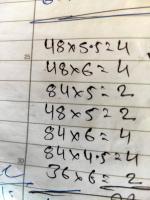 48×5.5=4
25
48×6=4
84×5=2
48×5=2
84×6=4
84×4.5=4
30
36×6=2